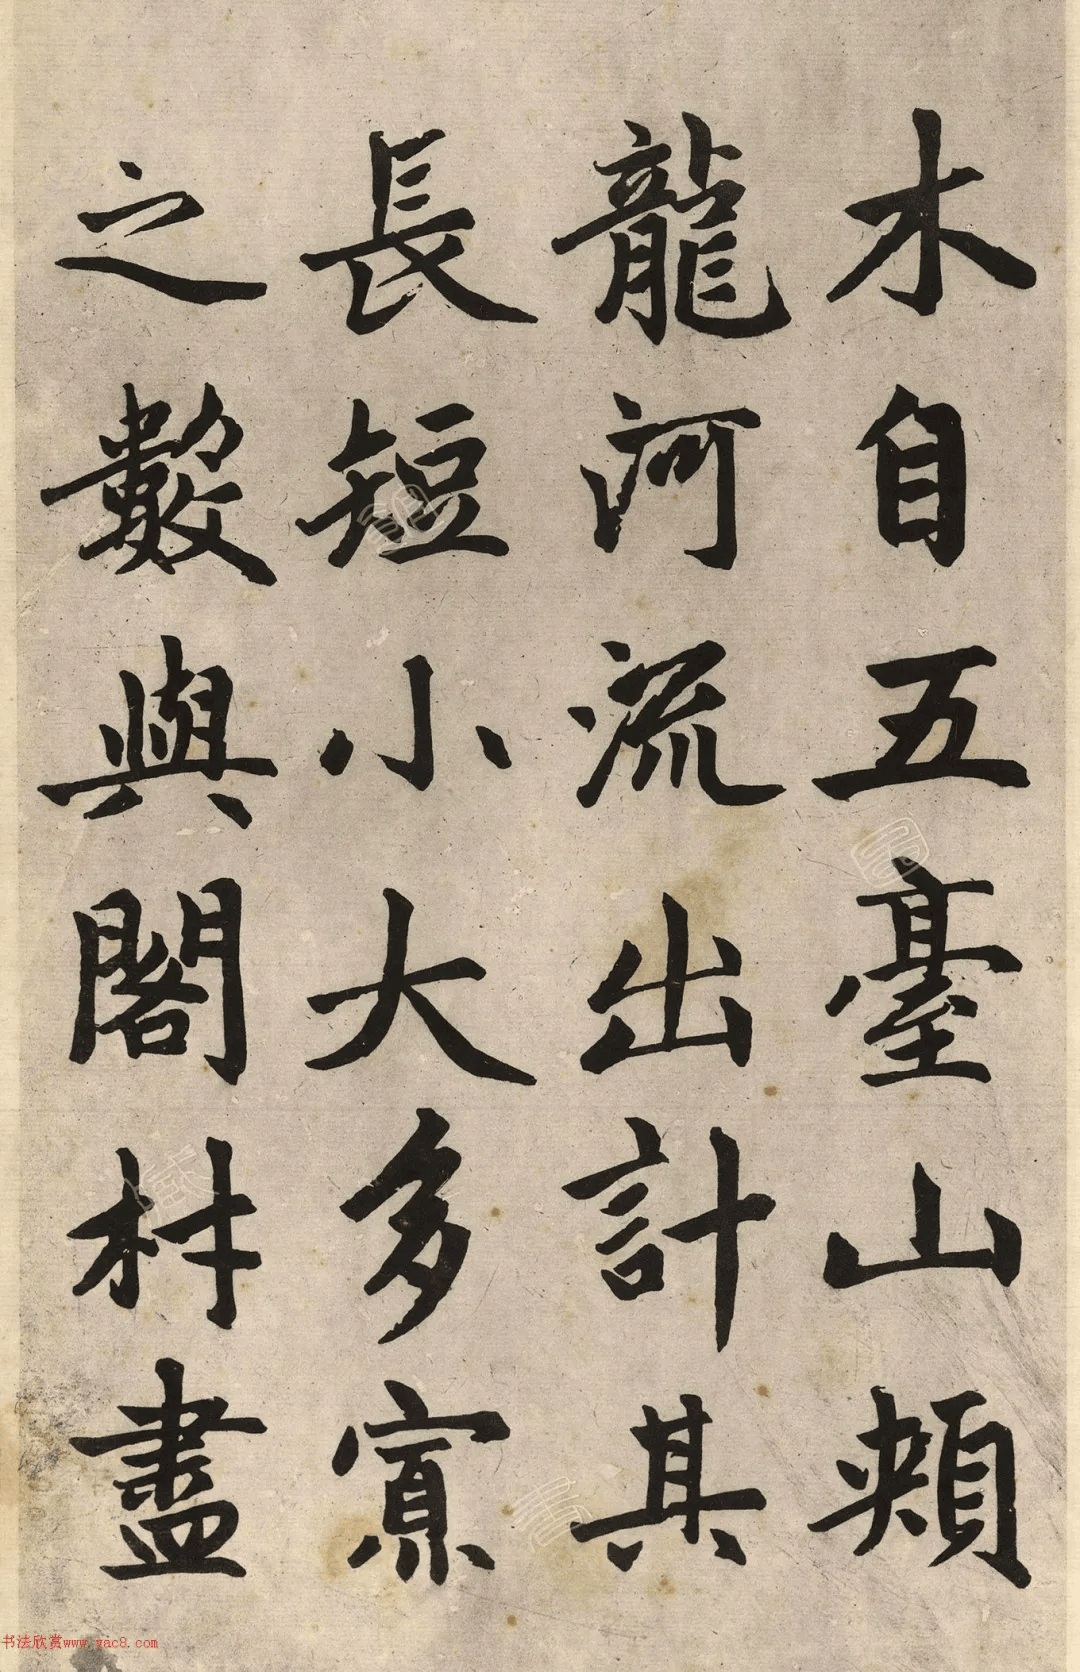 木自五臺山頰
龍河流出計其
長短小大多寡
之數與閣材盡
书法欣赏www.yac8.com